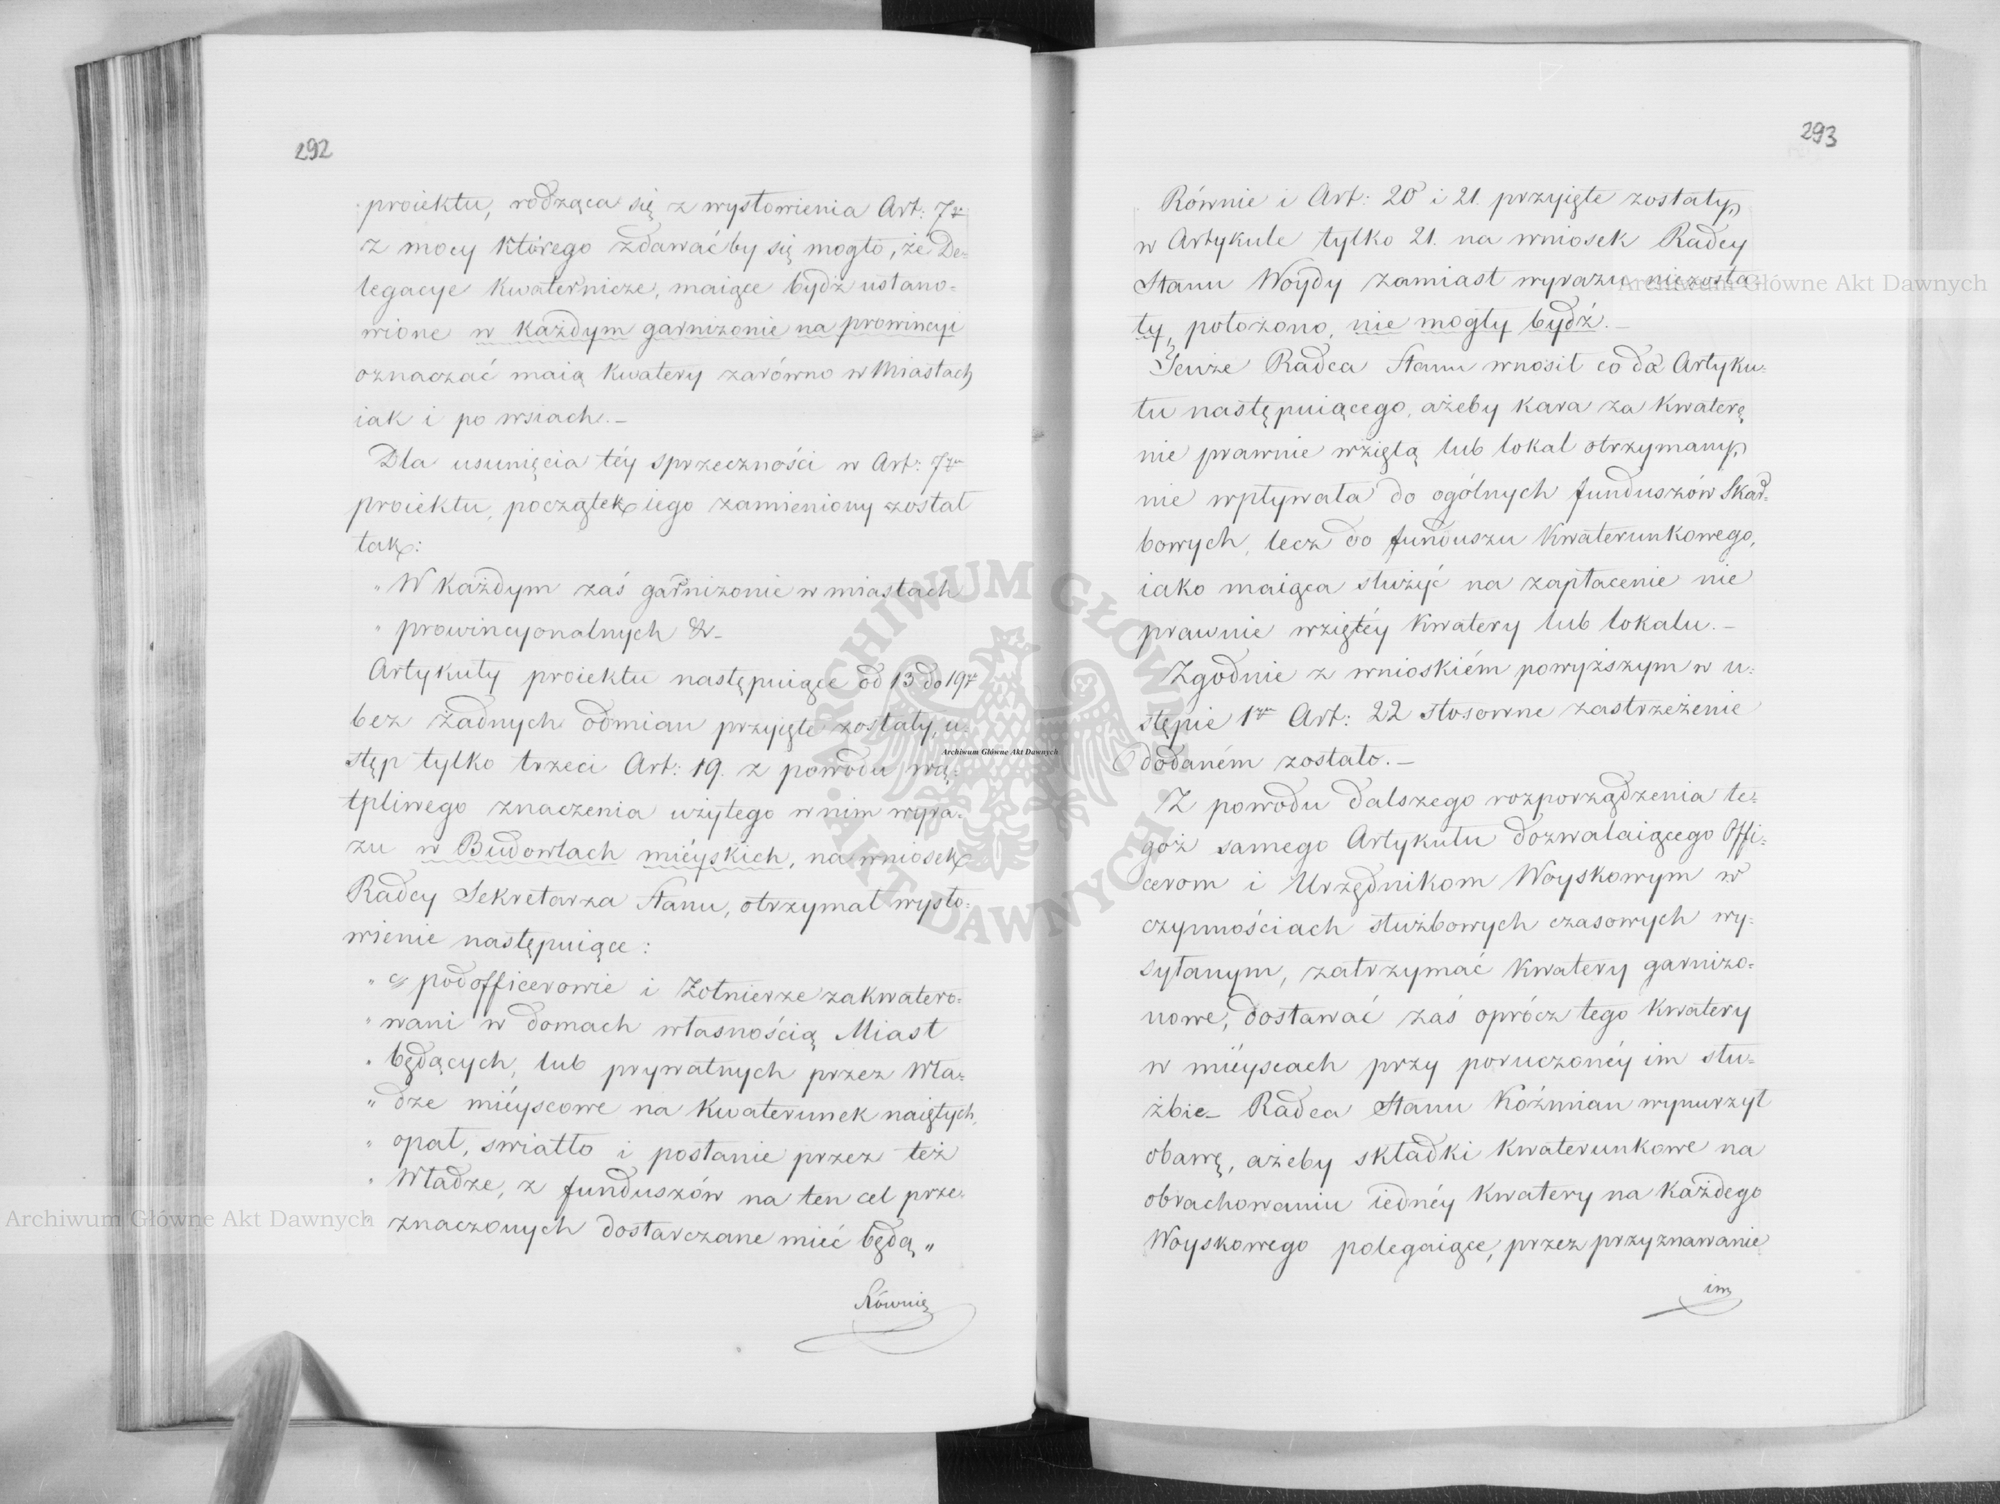 292
proiektu, rodząca się z wysłowienia Art: 7go
z mocy którego zdawaćby się mogło, że De-
legacye Kwaternicze, maiące bydź ustano-
wione w każdym garnizonie na prowincyi
oznaczać maią kwatery zarówno w Miastach
iak i po wsiach.-
Dla usunięcia téy sprzeczności w Art: 7ym
proiektu, początek iego zamieniony został
tak:
"W każdym zaś garnizonie w miastach
" prowincyonalnych &-
Artykuły proiektu następuiące od 13 do 19go
bez żadnych odmian przyięte zostały, u-
stęp tylko trzeci Art: 19. z powodu wą-
tpliwego znaczenia użytego w nim wyra-
zu w Budowlach mieyskich, na wniosek
Radcy Sekretarza Stanu, otrzymał wysło-
wienie następuiące:
" c, podofficerowie i Żołnierze zakwatero-
" wani w domach własnością Miast
" będących, lub prywatnych przez Wła-
" dze mieyscowe na Kwaterunek naiętych,
" opał, swiatło i posłanie przez też
" Władze, z funduszów na ten cel prze-
" znaczonych dostarczane mieć będą „
Równie
293
Równie i Art: 20 i 21. przyięte zostały,
w Artykule tylko 21. na wniosek Radcy
Stanu Woydy zamiast wyrazu niezosta-
ły, położono, nie mogły bydź.-
Tenże Radca Stanu wnosił co do Artyku-
łu następuiącego, ażeby kara za kwaterę
nie prawnie wziętą lub lokal otrzymany,
nie wpływała do ogólnych funduszów Skar-
bowych, lecz do funduszu Kwaterunkowego,
iako maiąca służyć na zapłacenie nie
prawnie wziętéy Kwatery lub lokalu.-
Zgodnie z wnioskiém powyższym w u-
stępie 1ym Art: 22 stosowne zastrzeżenie
dodaném zostało.-
Z powodu dalszego rozporządzenia te-
goż samego Artykułu dozwalaiącego Offi-
cerom i Urzędnikom Woyskowym w
czynnościach służbowych czasowych wy-
syłanym, zatrzymać Kwatery garnizo-
nowe, dostawać zaś oprócz tego Kwatery
w mieyscach przy poruczonéy im słu-
żbie- Radca Stanu Koźmian wynurzył
obawę, ażeby składki Kwaterunkowe na
obrachowaniu iednéy Kwatery na każdego
Woyskowego polegaiące, przez przyznawanie
im
Archiwum Główne Akt Dawnych
Archiwum Główne Akt Dawnych
Archiwum Główne Akt Dawnych
ARCHIWUM GŁÓWNE
· AKT DAWNYCH ·